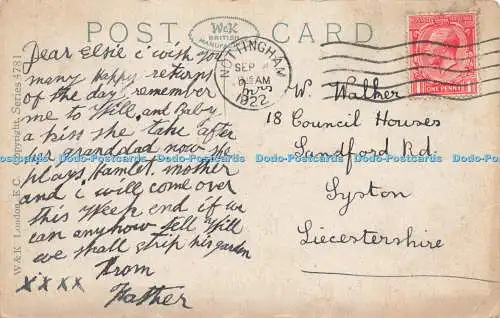 POST CARD
W&K
BRITISH
MANUFACTURE
NOTTINGHAM
SEP
AM
1922
ONE PENNY
W & K London, E.C. Copyright. Series 4781
Dear Elsie i wish you
many happy returns
of the day remember
me to Will. and Baby
a kiss she take after
her granddad now she
plays, Hamlet, mother
and i will come over
this Week end if we
can anyhow tell Will
we shall strip his garden
from
Father
xxxx
W. Walher
18 Council Houses
Sandford Rd.
Syston
Liecestershire
Dodo-Postcards Dodo-Postcards Dodo-Postcards Dodo-Postcards Dodo-Postcards Dodo-Postcards